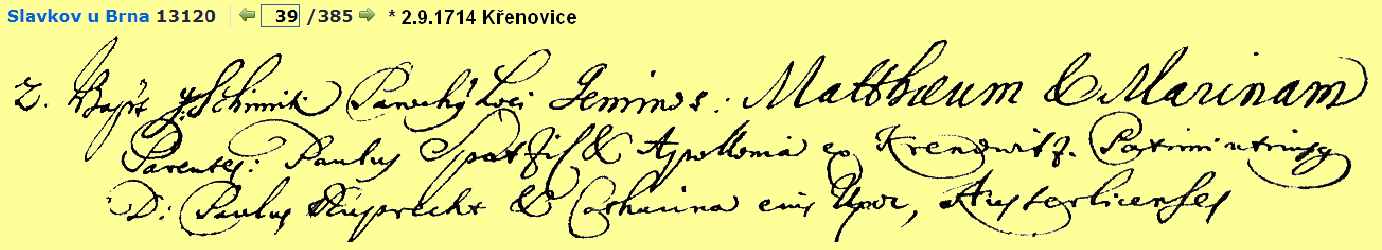 Slavkov u Brna 13120 39 /385 * 2.9.1714 Křenovice
2. Bapt: Schimik Parochý Loci Geminos: Matthæum & Marinam
Parentes: Paulus & Apollonia ex Krenowitz. Patrini utriusq
D: Paulus Ruprecht & Catharina eius Uxor, Austerlicenses